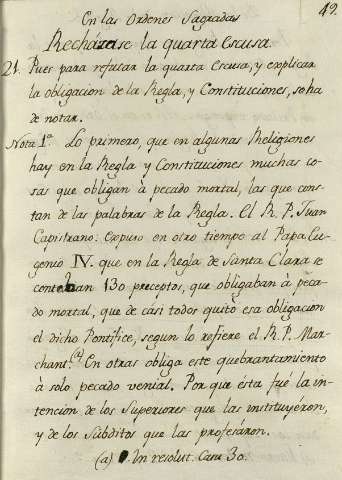 En las Ordenes Sagradas 49.
Recházase la quarta Escusa.
21. Pues para refutar la quarta Escusa, y explicar
la obligacion de la Regla, y Constituciones, se ha
de notar.
Nota 1ª. Lo primero, que en algunas Religiones
hay en la Regla y Constituciones muchas co-
sas que obligan à pecado mortal, las que cons-
tan de las palabras de la Regla. El R. P. Juan
Capistrano: Expuso en otro tiempo al Papa Eu-
genio IV. que en la Regla de Santa Clara se
contenban 130 preceptos, que obligaban à peca-
do mortal, que de cási todos quitó esa obligacion
el dicho Pontifice, segun lo refiere el R. P. Mar-
chant. (a) En otras obliga este quebrantamiento
à solo pecado venial. Por que ésta fué la in-
tencion de los Superiores que las instituyéron,
y de los Súbditos que las profesáron.
(a) In resolut. Casu 30.